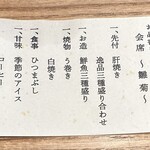 会席 ～雛菊～
一、先付 肝焼き
逸品三種盛り合わせ
一、お造 鮮魚三種盛り
一、焼物 う巻き
白焼き
一、食事 ひつまぶし
一、甘味 季節のアイス
コーヒー